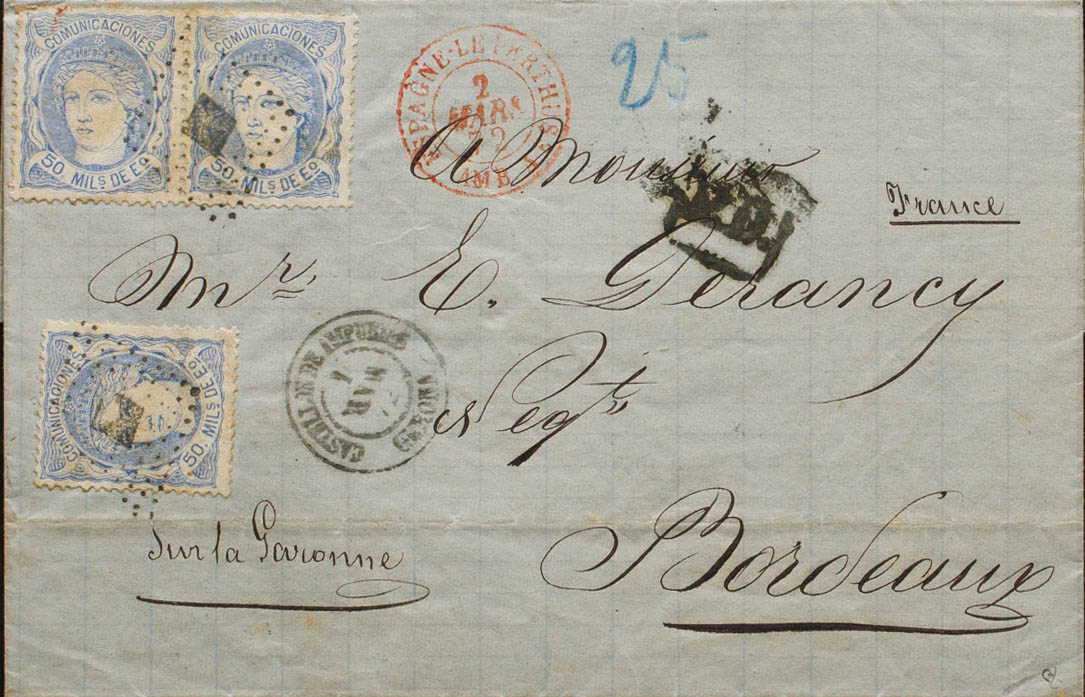 COMUNICACIONES
50 MILS DE EO
COMUNICACIONES
50. MILS DE EO
ESPAGNE-LE PERTHUS
2
MARS
72
AMB.
25
A Monsieur
P.D.
France
Mr. E. Gerancy
COMUNICACIONES
50. MILS DE EO
CASTELLON DE AMPURIAS
1
MAR
GERONA
Negt
Sur la Garonne
Bordeaux